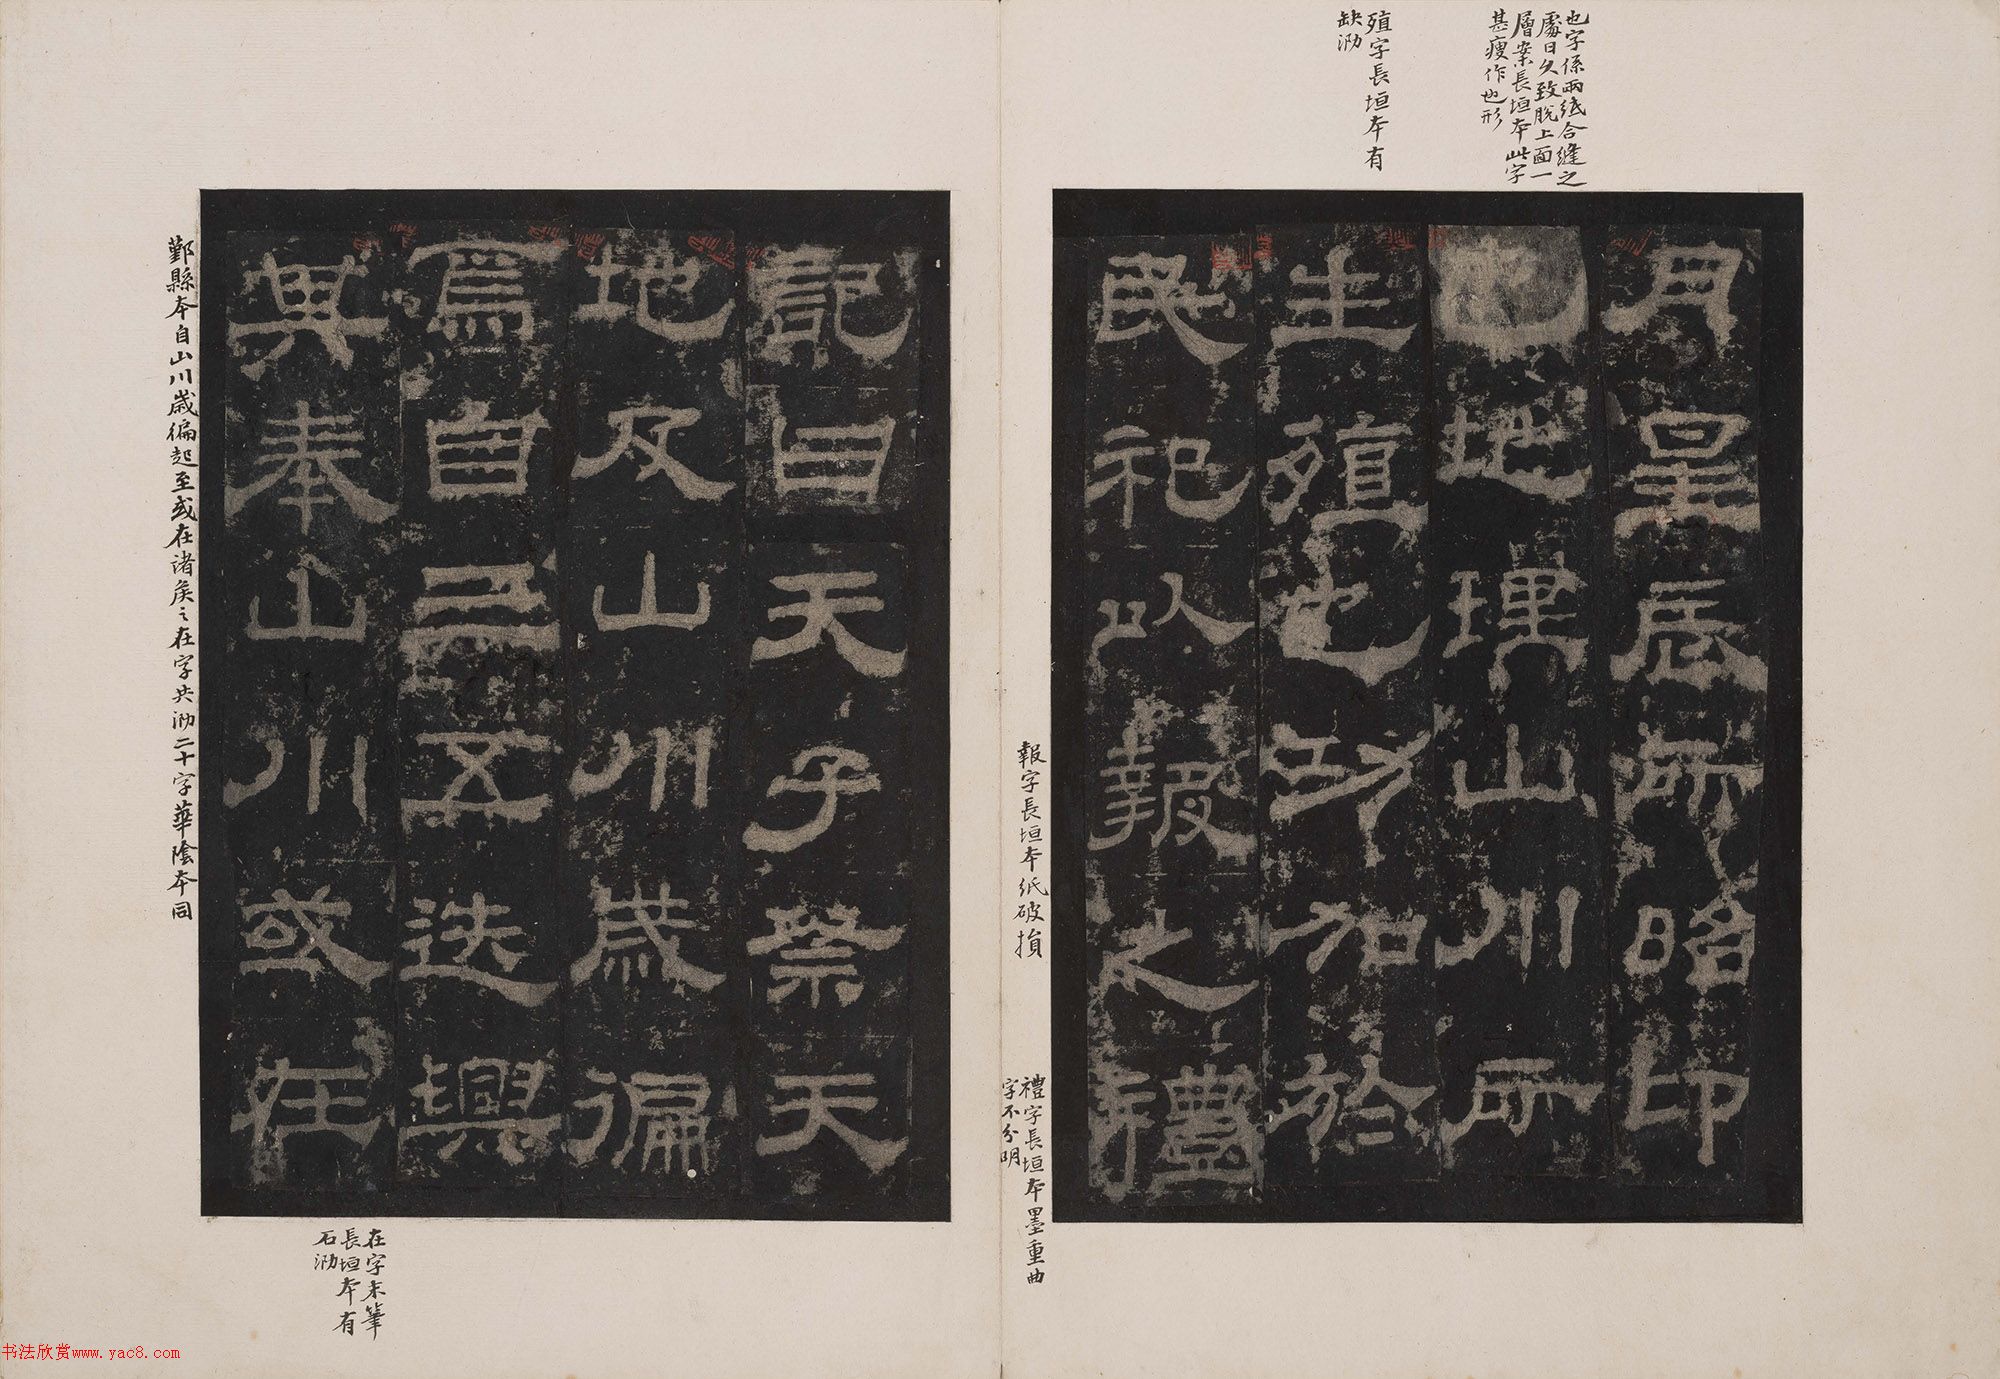 也字係兩紙合縫之
處日久致脫上面一
層案長垣本此字
甚瘦作也形
殖字長垣本有
缺泐
月星辰所昭卬
也地理山川所
生殖也功加於
民祀以報之禮
報字長垣本紙破損
禮字長垣本墨重曲
字不分明
記曰天子祭天
地及山川歲徧
焉自三五迭興
其奉山川或在
鄞縣本自山川歲徧起至或在諸矦之在字共泐二十字華陰本同
在字末筆
長垣本有
石泐
书法欣赏www.yac8.com